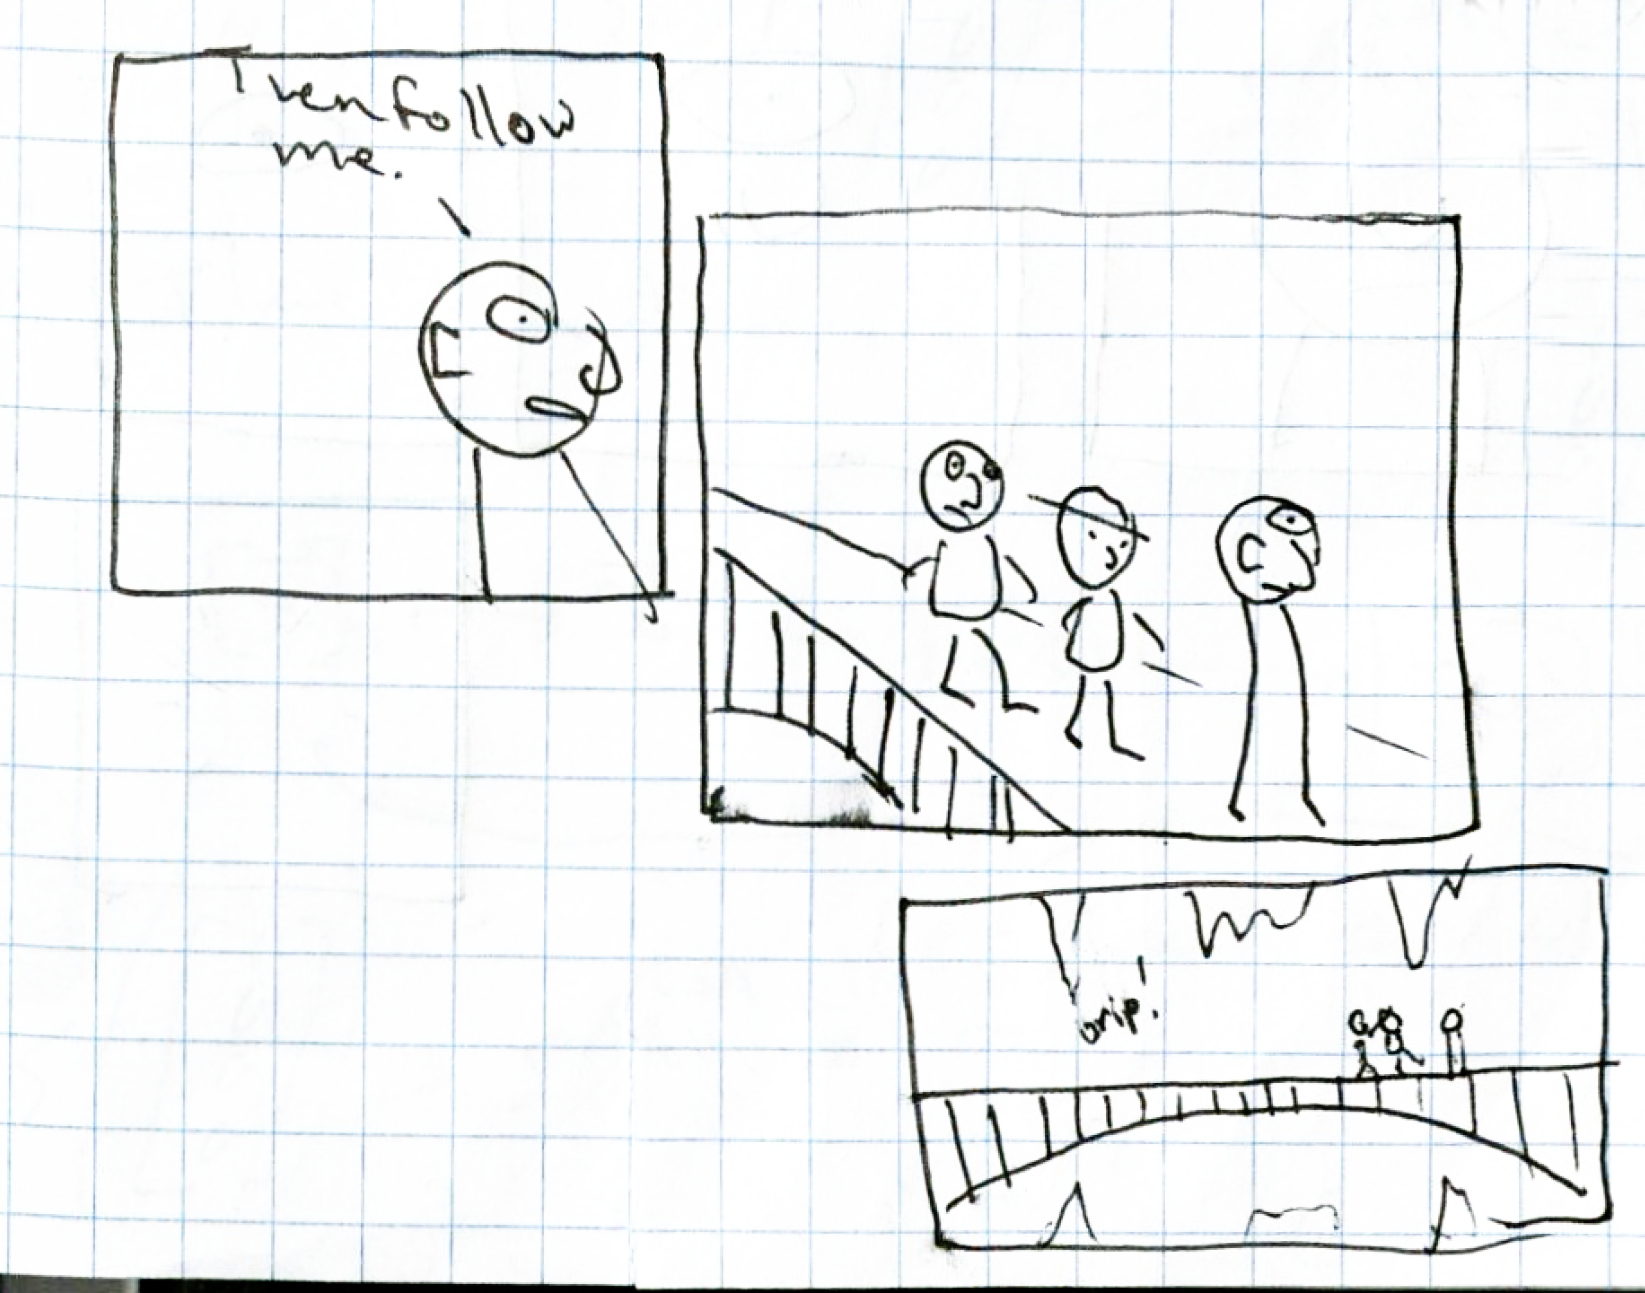 Then follow
me.
Drip!